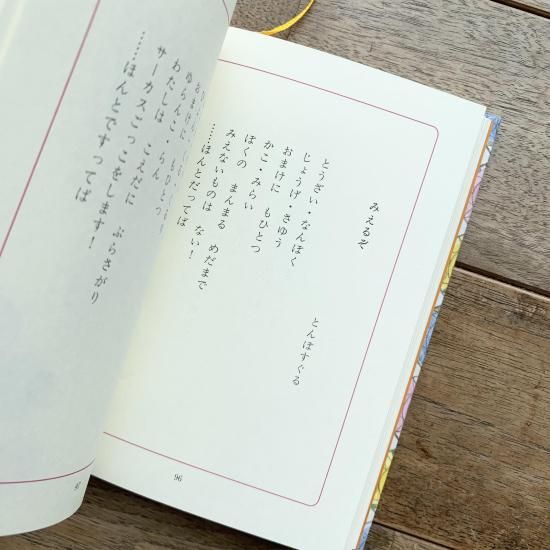 みえるぞ
とんぼすぐる
とうざい・なんぼく
じょうげ・さゆう
おまけに もひとつ
かこ・みらい
ぼくの まんまる めだまで
みえないものは ない！
……ほんとだってば
96
ゆらんこ もひとつ
わたしは らん
サーカスごっこをします！
こえだに ぶらさがり
……ほんとですってば